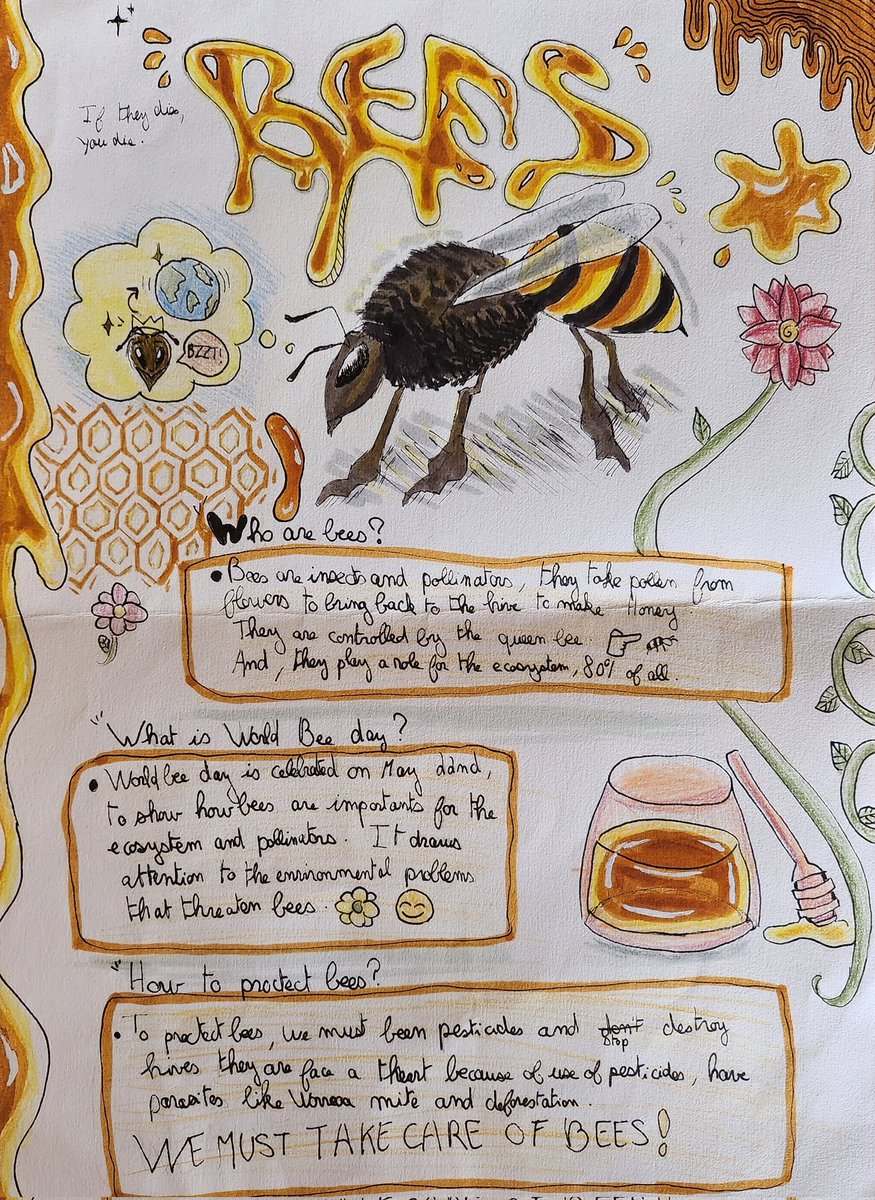 BEES
If they dies,
you die.
BZZT!
Who are bees?
• Bees are insects and pollinators, they take pollen from
flowers to bring back to the hive to make Honey.
They are controlled by the queen bee.
And, they play a role for the ecosystem, 80% of all.
What is World Bee day?
• World bee day is celebrated on May 22nd,
to show how bees are importants for the
ecosystem and pollinators. It draws
attention to the environmental problems
that threaten bees.
How to proctect bees?
• To proctect bees, we must been pesticides and don't destroy
stop
hives they are face a theart because of use of pesticides, have
parasites like Vorroa mite and deforestation.
WE MUST TAKE CARE OF BEES!